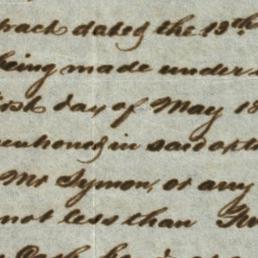 tract dated the 19th
being made under
first day of May 18
mentioned in said
Mr Symon, or any
not less than